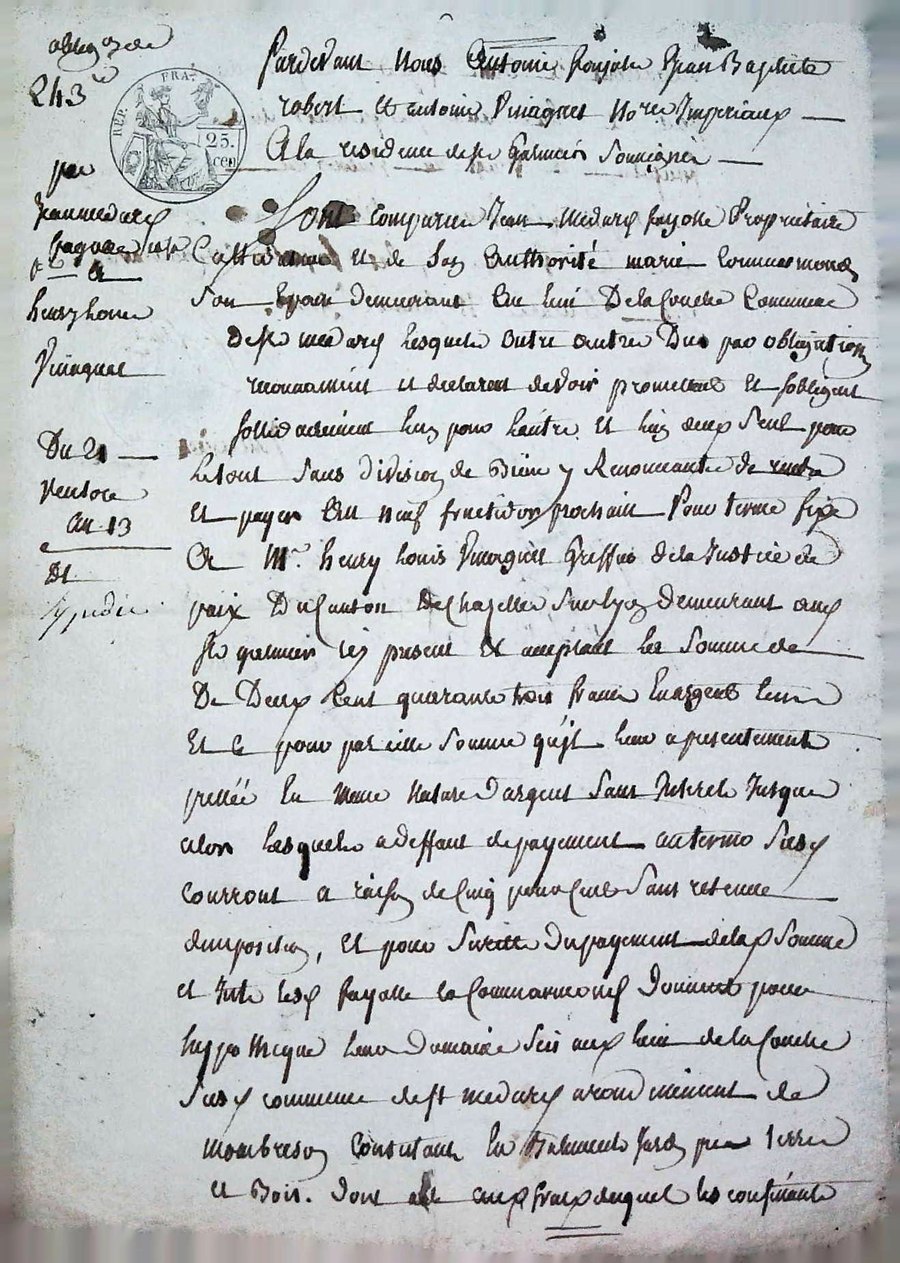 obligation de
243
par
Jean medard
fayolle
et
a
henry louis
Vinagnet
Du 21
ventose
an 13
REP. FRA.
25.
CEN
Pardevant Nous Antoine Jean Baptiste
robert Et antoine Vinagnet No.res Imperiaux
A la residence de St Galmier Soussignés
Sont Comparu Jean Medard fayolle Propriétaire
Cultivateur et de Son Authorité marie
Son Epouse demeurant Au lieu De la Conche Commune
de St medard lesquels Entre autre Du par obligation
reconnaissent et declarent devoir promettent Et sobligent
sollidairement lun pour lautre Et lun deux Seul pour
Letout Sans division de Biens y Renonceants de rendre
Et payer Au neuf fructidor prochain Pour terme fixe
A Mr. henry louis Vinagnet Greffier de la Justice de
paix Du Canton De Chazelles Sur lyon demeurant aux
St galmier icy present Et acceptant La Somme de
De Deux Cent quarante trois francs En argent
Et Ce pour pareille Somme qu'il leur a presentement
prettée En Meme Nature d'argent Sans Interets Jusque
alors Lesquels adeffaut de payement au terme Susd
Courront a raison de Cinq pour Cent Sans retenue
dimposition, Et pour Sureté Du payement de lad Somme
et Interets lesd fayolle Donnent pour
hyppotheque leur Domaine Scis aux lieu de la Conche
Susd commune de St medard arondiment de
Monbrison Consistant En Batiment Jardin pré terre
et Bois. Dont aux fraix duquel les confinants